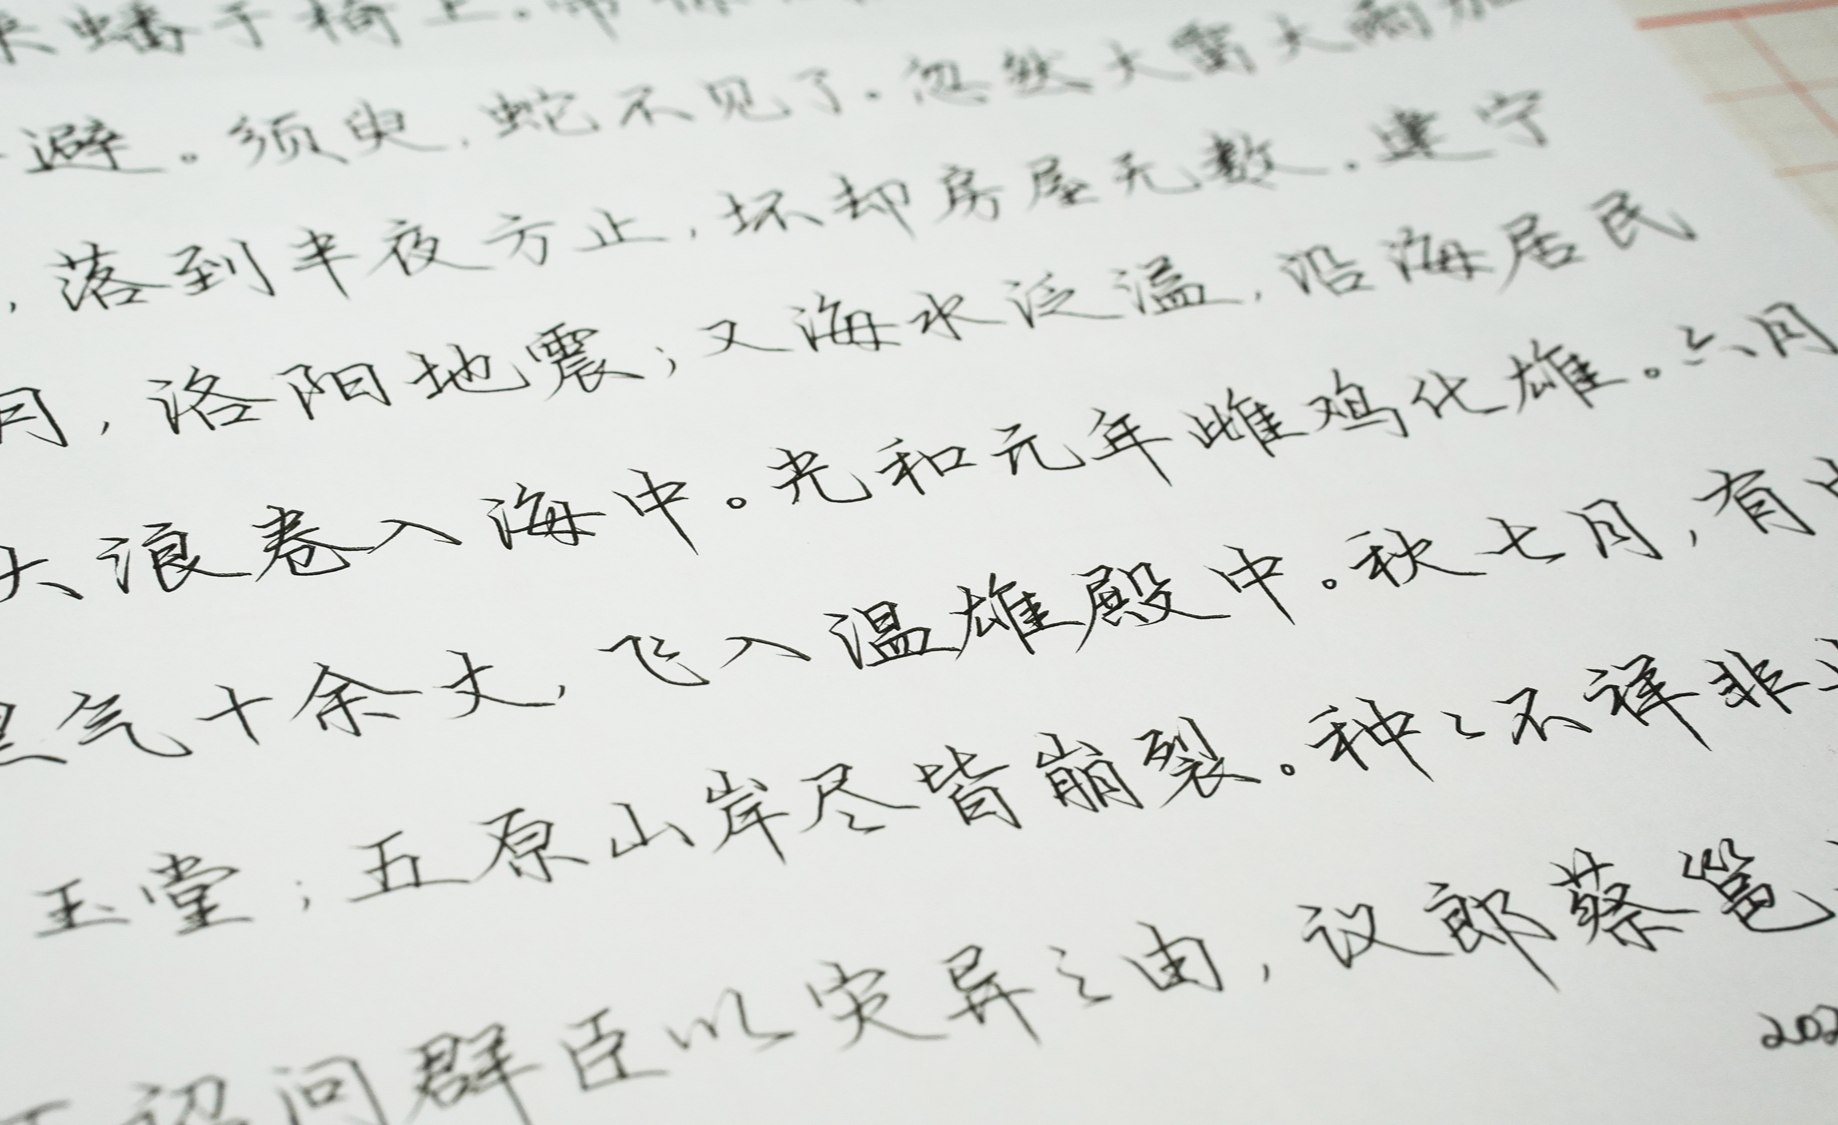 来蟠于椅上。帝惊
避。须臾，蛇不见了。忽然大雷大雨加
，落到半夜方止，坏却房屋无数。建宁
月，洛阳地震；又海水泛溢，沿海居民
大浪卷入海中。光和元年雌鸡化雄。六月
黑气十余丈，飞入温雄殿中。秋七月，有
玉堂；五原山岸尽皆崩裂。种〻不祥非
下诏问群臣以灾异之由，议郎蔡邕
202